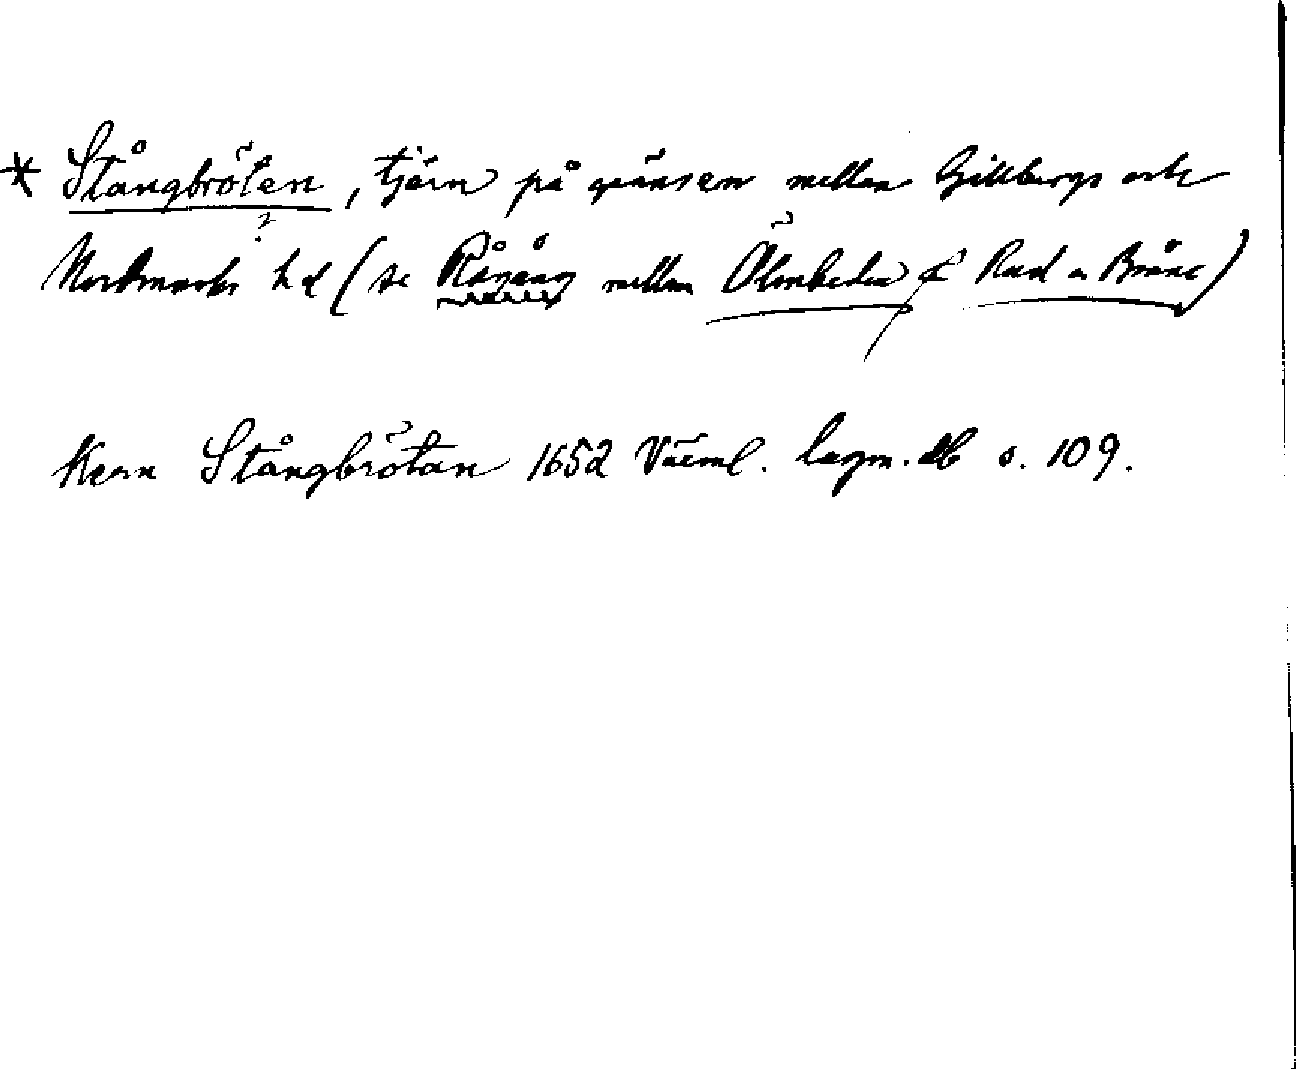 * Stångbröten, tjärn på gränsen mellan Gillbergs och
Nordmarks ? hd (se Rågång mellan Ölmheden & Rud o Bråne)
Kern Stångbrötan 1652 Värml. lagm. db s. 109.